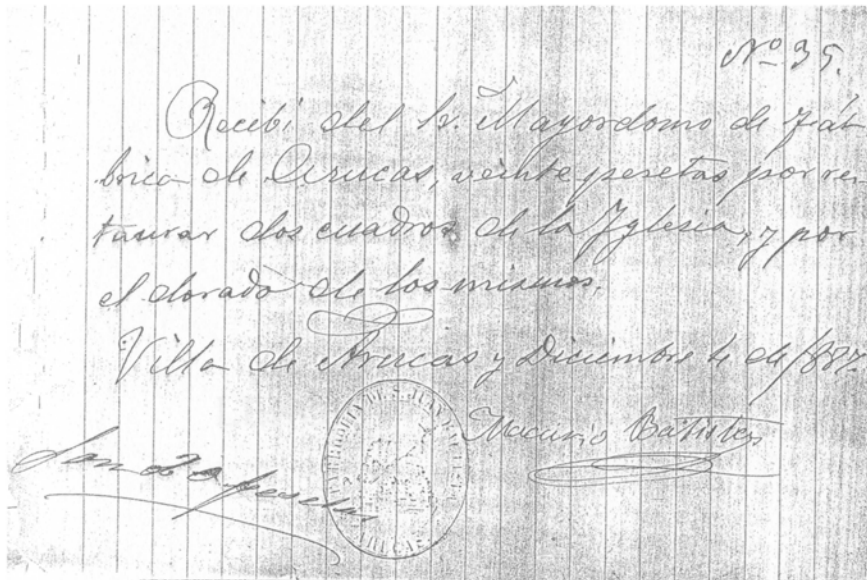 Nº 35.
Recibí del Sr. Mayordomo de Fá-
brica de Arucas, veinte pesetas por res-
taurar dos cuadros de la Yglesia, y por
el dorado de los mismos.
Villa de Arucas y Diciembre 4 de
Macario Batista
Son 20 pesetas
PARROQUIA DE S. JUAN BAUTISTA
ARUCAS